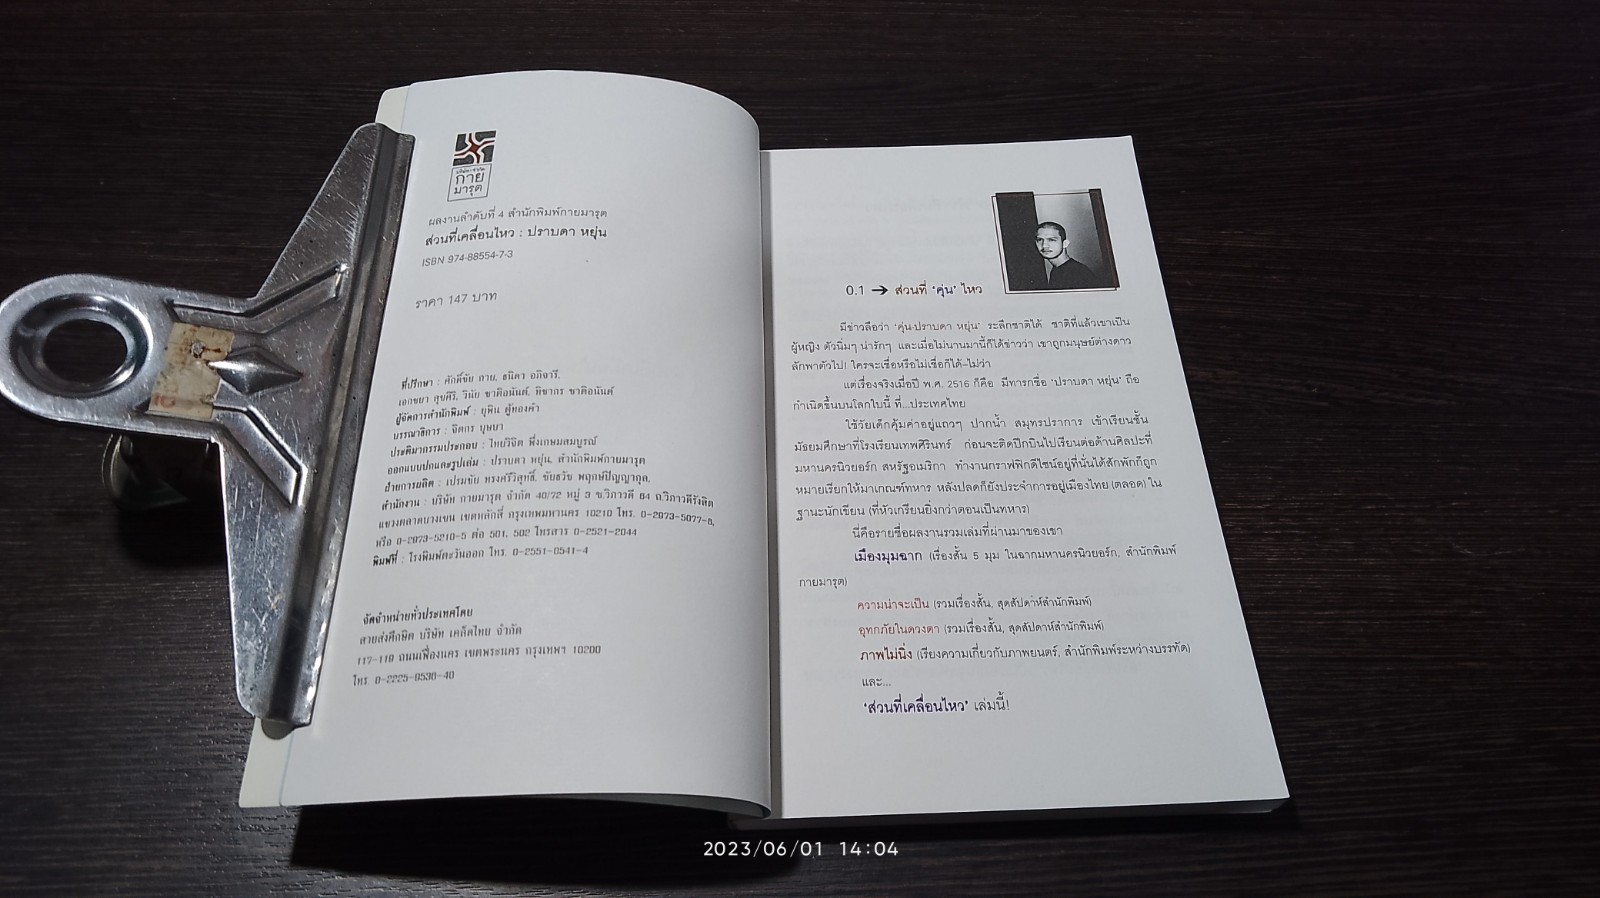 บริษัท-จำกัด
กาย
มารุต
ผลงานลำดับที่ 4 สำนักพิมพ์กายมารุต
ส่วนที่เคลื่อนไหว : ปราบดา หยุ่น
ISBN 974-88554-7-3
ราคา 147 บาท
ที่ปรึกษา : ศักดิ์ชัย กาย, ธนิดา อภิจารี,
เอกชยา สุขศิริ, วินัย ชาติอนันต์, ทิชากร ชาติอนันต์
ผู้จัดการสำนักพิมพ์ : ยุพิน ตู้ทองคำ
บรรณาธิการ : จิตกร บุษบา
ประติมากรรมประกอบ : ไทยวิจิต พึ่งเกษมสมบูรณ์
ออกแบบปกและรูปเล่ม : ปราบดา หยุ่น, สำนักพิมพ์กายมารุต
ฝ่ายการผลิต : เปรมชัย ทรงศรีวิสุทธิ์, ชัยธวัช พฤกษ์ปัญญากุล,
สำนักงาน : บริษัท กายมารุต จำกัด 40/72 หมู่ 3 ซ.วิภาวดี 64 ถ.วิภาวดีรังสิต
แขวงตลาดบางเขน เขตหลักสี่ กรุงเทพมหานคร 10210 โทร. 0-2973-5077-8,
หรือ 0-2973-5210-5 ต่อ 501, 502 โทรสาร 0-2521-2044
พิมพ์ที่ : โรงพิมพ์ตะวันออก โทร. 0-2551-0541-4
จัดจำหน่ายทั่วประเทศโดย
สายส่งศึกษิต บริษัท เคล็ดไทย จำกัด
117-119 ถนนเฟื่องนคร เขตพระนคร กรุงเทพฯ 10200
โทร. 0-2225-9536-40
0.1 → ส่วนที่ 'คุ่น' ไหว
มีข่าวลือว่า 'คุ่น-ปราบดา หยุ่น' ระลึกชาติได้ ชาติที่แล้วเขาเป็น
ผู้หญิง ตัวนิ่มๆ น่ารักๆ และเมื่อไม่นานมานี้ก็ได้ข่าวว่า เขาถูกมนุษย์ต่างดาว
ลักพาตัวไป! ใครจะเชื่อหรือไม่เชื่อก็ได้-ไม่ว่า
แต่เรื่องจริงเมื่อปี พ.ศ. 2516 ก็คือ มีทารกชื่อ 'ปราบดา หยุ่น' ถือ
กำเนิดขึ้นบนโลกใบนี้ ที่...ประเทศไทย
ใช้วัยเด็กคุ้มค่าอยู่แถวๆ ปากน้ำ สมุทรปราการ เข้าเรียนชั้น
มัธยมศึกษาที่โรงเรียนเทพศิรินทร์ ก่อนจะติดปีกบินไปเรียนต่อด้านศิลปะที่
มหานครนิวยอร์ก สหรัฐอเมริกา ทำงานกราฟฟิกดีไซน์อยู่ที่นั่นได้สักพักก็ถูก
หมายเรียกให้มาเกณฑ์ทหาร หลังปลดก็ยังประจำการอยู่เมืองไทย (ตลอด) ใน
ฐานะนักเขียน (ที่หัวเกรียนยิ่งกว่าตอนเป็นทหาร)
นี่คือรายชื่อผลงานรวมเล่มที่ผ่านมาของเขา
เมืองมุมฉาก (เรื่องสั้น 5 มุม ในฉากมหานครนิวยอร์ก, สำนักพิมพ์
กายมารุต)
ความน่าจะเป็น (รวมเรื่องสั้น, สุดสัปดาห์สำนักพิมพ์)
อุทกภัยในดวงตา (รวมเรื่องสั้น, สุดสัปดาห์สำนักพิมพ์)
ภาพไม่นิ่ง (เรียงความเกี่ยวกับภาพยนตร์, สำนักพิมพ์ระหว่างบรรทัด)
และ...
'ส่วนที่เคลื่อนไหว' เล่มนี้!
2023/06/01 14:04